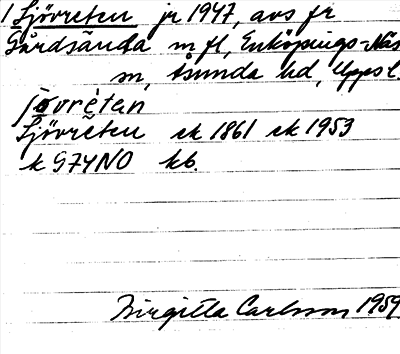 1 Sjövreten jr 1947, avs fr
Gårdsända m fl, Enköpings-Näs
sn, Åsunda hd, Uppsl.
jövrètan
Sjövreten ek 1861 ek 1953
k G74NO kb.
Birgitta Carlsson 1959